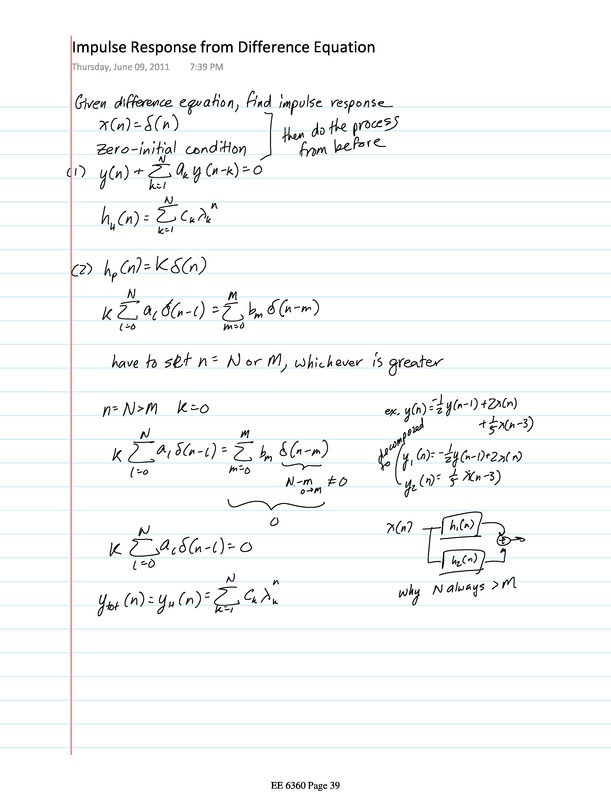 Impulse Response from Difference Equation
Thursday, June 09, 2011 7:39 PM
Given difference equation, find impulse response
x(n)=δ(n)
zero-initial condition
then do the process
from before
(1) y(n) + ∑_{k=1}^{N} a_k y(n-k) = 0
h_H(n) = ∑_{k=1}^{N} c_k λ_k^n
(2) h_p(n) = K δ(n)
K ∑_{l=0}^{N} a_l δ(n-l) = ∑_{m=0}^{M} b_m δ(n-m)
have to set n = N or M, whichever is greater
n = N > M K=0
K ∑_{l=0}^{N} a_l δ(n-l) = ∑_{m=0}^{M} b_m δ(n-m)
N-m ≠ 0
0→M
0
K ∑_{l=0}^{N} a_l δ(n-l) = 0
y_tot(n) = y_H(n) = ∑_{k=1}^{N} c_k λ_k^n
ex. y(n) = -1/2 y(n-1) + 2x(n)
+ 1/5 x(n-3)
decomposed
to
y_1(n) = -1/2 y(n-1) + 2x(n)
y_2(n) = 1/5 x(n-3)
x(n)
h_1(n)
+
h_2(n)
why N always > M
EE 6360 Page 39